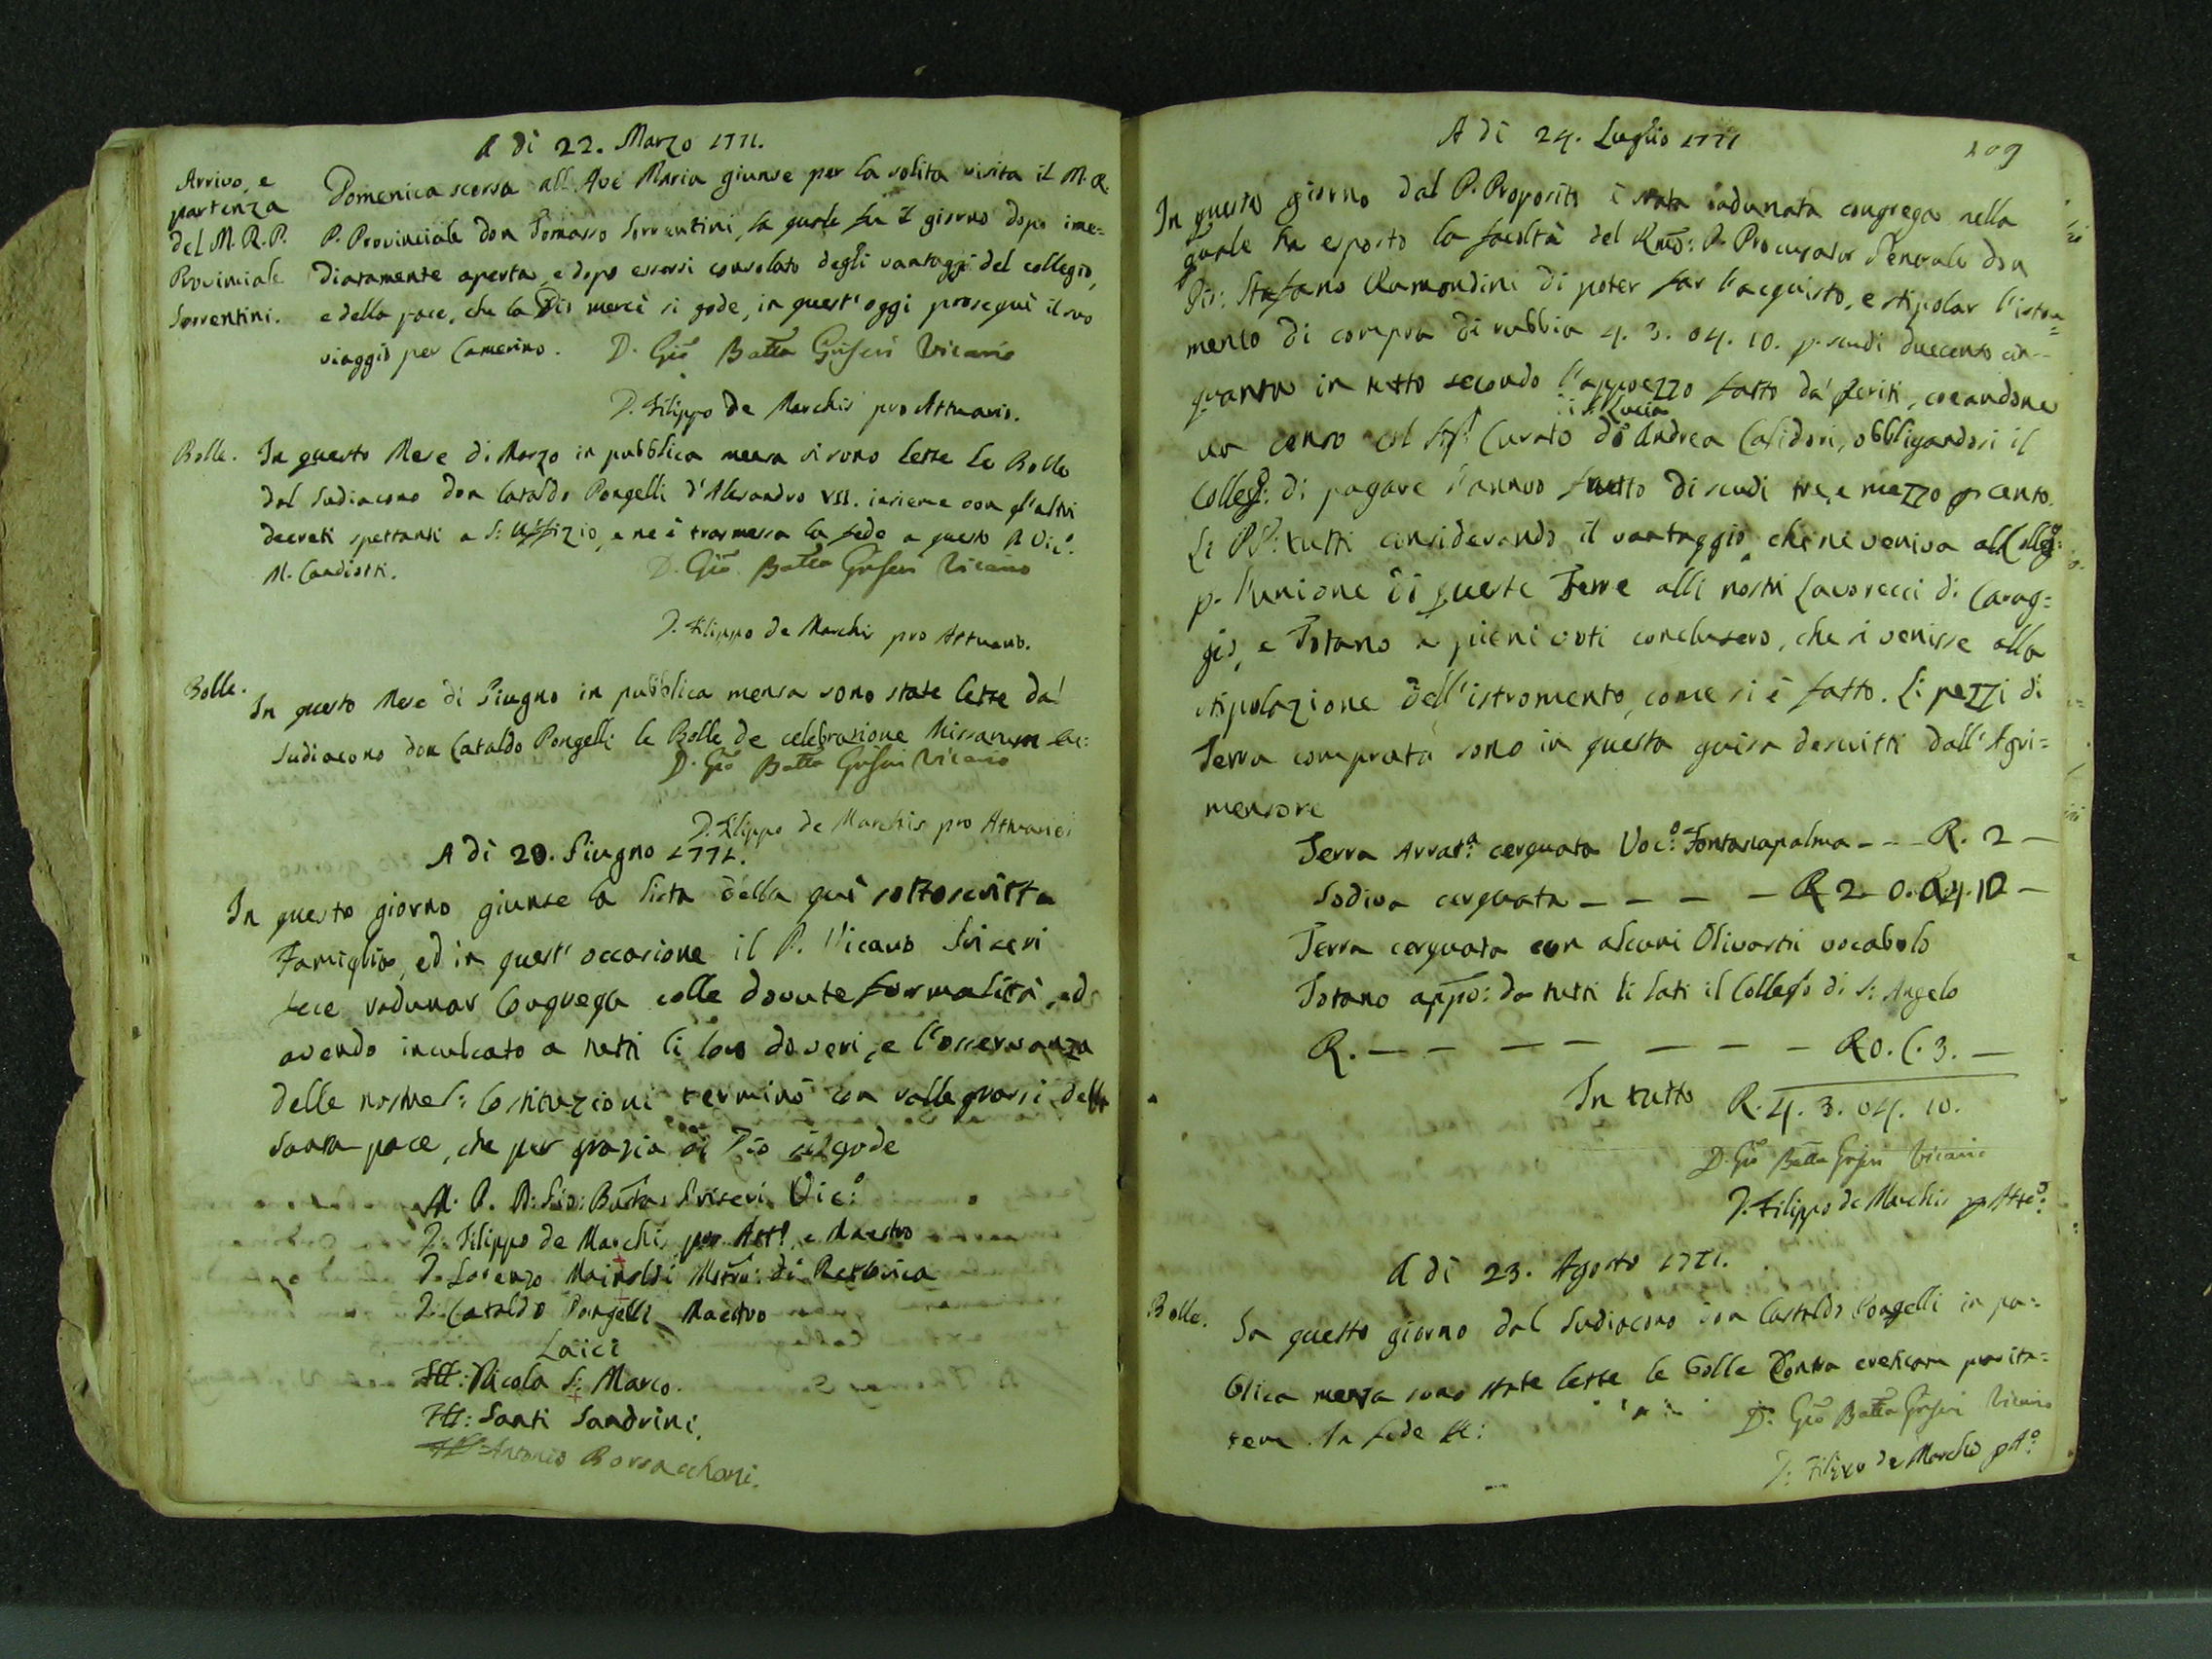 A di 22. Marzo 1771.
Arrivo, e
partenza
del M. R. P.
Provinciale
Sorrentini.
Domenica scorsa all'Ave Maria giunse per la solita visita il M. R.
P. Provinciale don Tomasso Sorrentini, la quale fu il giorno dopo ime=
diatamente aperta, e dopo essersi consolato degli vantaggi del collegio,
e della pace, che la Dio mercè si gode, in quest'oggi proseguì il suo
viaggio per Camerino.
D. Gio Batta Griseri Vicario
D. Filippo de Marchis pro Attuario.
Bolle.
In questo Mese di Marzo in pubblica mensa si sono lette le Bolle
dal Sudiacono don Cataldo Pongelli d'Alesandro VII. insieme con gl'altri
decreti spettanti a S: Uffizio, e ne è trasmessa la fede a questo P. Vic.o
M. Candiotti.
D. Gio Batta Griseri Vicario
D. Filippo de Marchis pro Attuario.
Bolle.
In questo Mese di Giugno in pubblica mensa sono state lette dal
Sudiacono don Cataldo Pongelli le Bolle de celebrazione Missarum &c:
D. Gio Batta Griseri Vicario
D. Filippo de Marchis pro Attuario
A di 20. Giugno 1771.
In questo giorno giunse la lista della quì sottoscritta
Famiglia, ed in quest'occasione il P. Vicario Griseri
fece radunar Congrega colle dovute formalità, ed
avendo inculcato a tutti li loro doveri, e l'osservanza
delle nostre S: Costituzioni terminò con rallegrarsi della
santa pace, che per grazia di Dio si gode
M. R. P. Gio: Batta Griseri Vic:o
D. Filippo de Marchis pro Att.o e Maestro
D. Lorenzo Mainoldi Mstro: di Retorica
D. Cataldo Pongelli Maestro
Laici
Nicola S: Marco.
Santi Sandrini.
Antonio Borsacchoni.
109
A di 24. Luglio 1771
In questo giorno dal P. Proposito è stata radunata congrega nella
quale ha esposto la facoltà del Rmo: P. Procurator Generale don
Gio: Stefano Ramondini di poter far l'acquisto, e stipolar l'istru=
mento di compra di rubbia 4. 3. 04. 10. p. scudi duecento cin-
quanta in tutto secondo l'apprezzo fatto da' Periti, creandone
di S. Lucia
un censo col Sig.r Curato D. Andrea Calidori, obbligandosi il
Colleg.o: di pagare l'annuo frutto di scudi tre, e mezzo p cento.
Li PP: tutti considerando il vantaggio, che ne veniva al Colleg.o:
p. l'unione di queste Terre alli nostri Lavorecci di Carag=
gio, e Totano a pieni voti conclusero, che si venisse alla
stipolazione dell'istromento, come si è fatto. Li pezzi di
Terra comprata sono in questa guisa descritti dall'Agri=
mensore
Terra Arrat.a cerquata Voc:o Fontanapalma - - - R. 2 -
Sodiva cerquata - - - - - R 2. 0. 04. 10 -
Terra cerquata con alcuni Olivastri vocabolo
Totano appo: da tutti li lati il Collegio di S: Angelo
R. - - - - - - - - R 0. C. 3. -
In tutto R. 4. 3. 04. 10.
D. Gio Batta Griseri Vicario
D. Filippo de Marchis p Att:o
A di 23. Agosto 1771.
Bolle.
In questo giorno dal Sudiacono don Castaldo Pongelli in pu=
blica mensa sono state lette le bolle Contra ereticam pravita=
tem. In fede &c:
D. Gio Batta Griseri Vicario
D. Filippo de Marchis p A:o